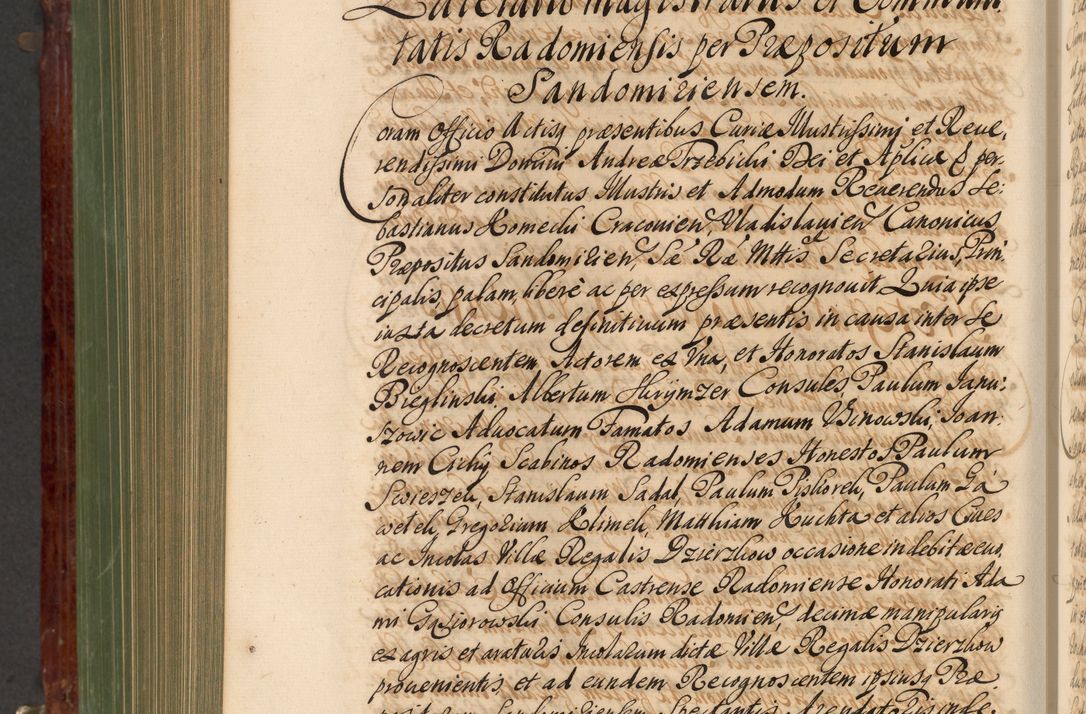 Quietatio Magistratus et Communi
tatis Radomiensis per Præpositum
Sandomiriensem.
Coram Officio Actisq præsentibus Curiæ Illustrissimi et Reue,
rendissimi Domini Andreæ Trzebicki Dei et Aplicæ per,
sonaliter constitutus Illustris et Admodum Reuerendus Se:
bastianus Komecki Cracouien, Vladislauien Canonicus
Præpositus Sandomirien, Sæ Ræ Mttis Secretarius, Prin,
cipalis, palam, liberè ac per expressum recognouit. Quia ipse
iuxta decretum definitiuum præsentis in causa inter se
Recognoscentem Actorem ex Vna, et Honoratos Stanislaum
Bieglinski Albertum Hurÿmzer Consules Paulum Japu:
szowic Aduocatum Famatos Adamum Binowski, Joan,
nem Cichÿ Scabinos Radomienses Honestos Paulum
Swieszek, Stanislaum Sadal, Paulum Piskorek, Paulum Ga
wetek, Gregorium Klimek, Matthiam Kuchta et alios Ciues
ac Incolas Villæ Regalis Dzierzkow occasione indebitæ euo,
cationis ad Officium Castrense Radomiense Honorati Ada
mi Gąsiorowski Consulis Radomien, decimæ manipularis
ex agris et araturis Incolarum dictæ Villæ Regalis Dzierzkow
prouenientis, et ad eundem Recognoscentem ipsiusq Præ